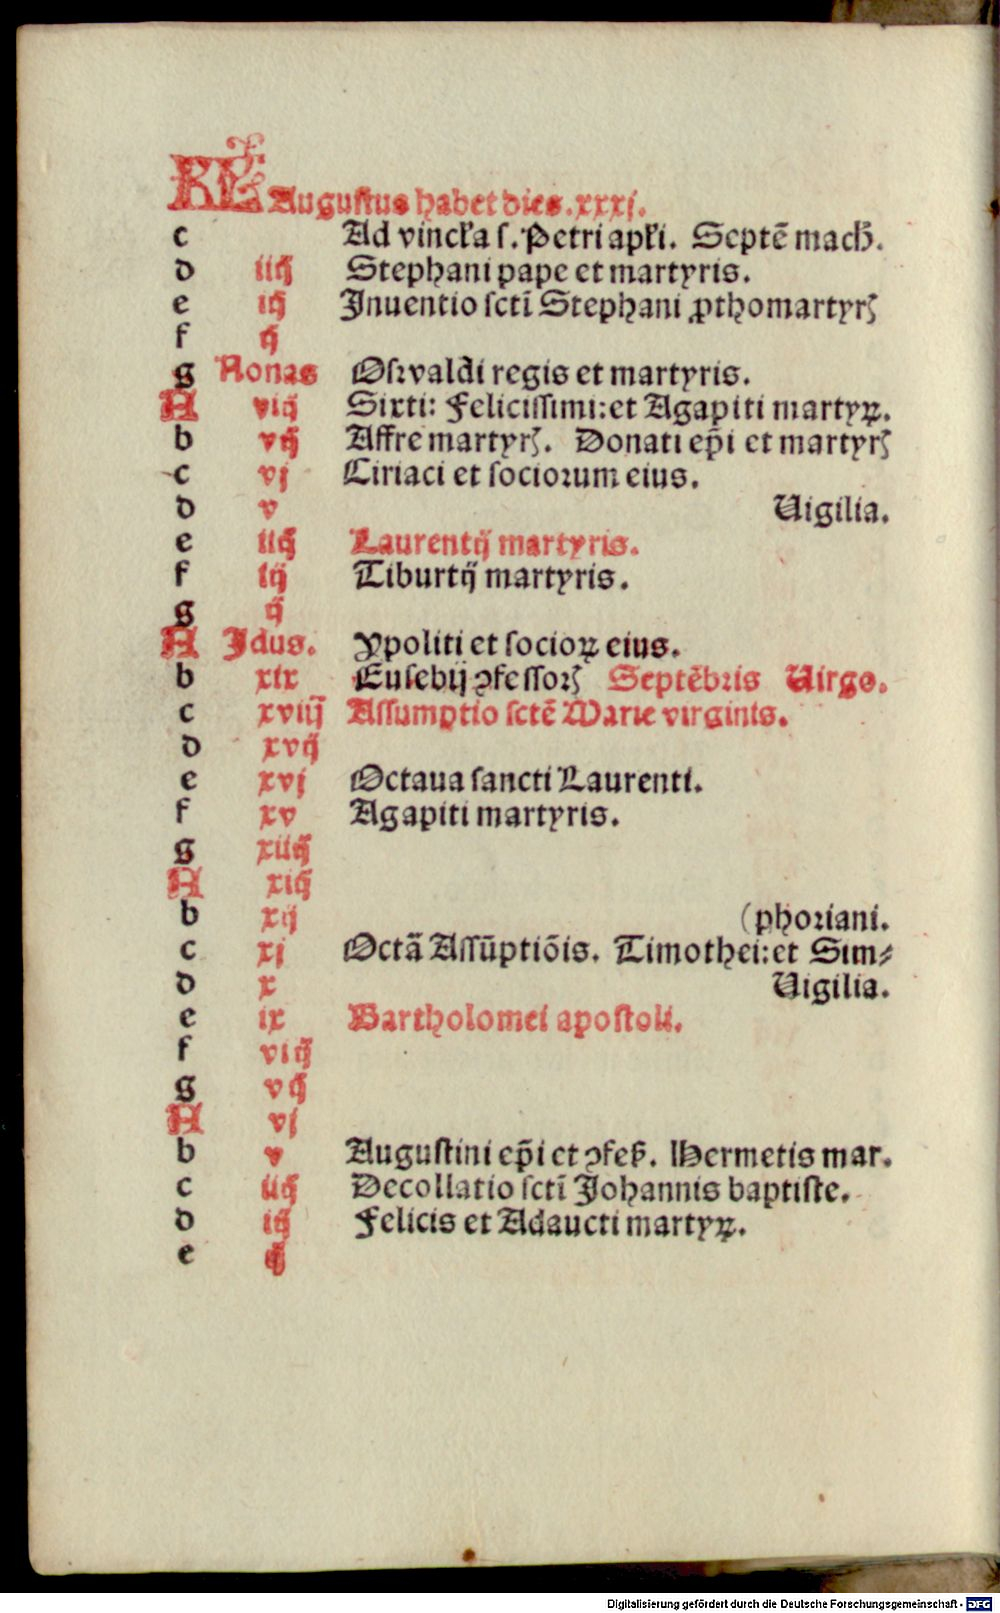 KL Augustus habet dies.xxxj.
c Ad vincła s. Petri apłi. Septē mach.
d iiij Stephani pape et martyris.
e iij Inuentio sctī Stephani ꝓthomartyrꝭ
f ij
g Nonas Oswaldi regis et martyris.
A viij Sixti: Felicissimi: et Agapiti martyrꝝ.
b vij Affre martyrꝭ. Donati ep̄i et martyrꝭ
c vj Ciriaci et sociorum eius.
d v Vigilia.
e iiij Laurentij martyris.
f iij Tiburtij martyris.
g ij
A Idus. Ypoliti et socioꝝ eius.
b xix Eusebij ꝯfessorꝭ Septēbris Virgo.
c xviij Assumptio sctē Marie virginis.
d xvij
e xvj Octaua sancti Laurenti.
f xv Agapiti martyris.
g xiiij
A xiij
b xij (phoriani.
c xj Octā Assūptiōis. Timothei: et Sim-
d x Vigilia.
e ix Bartholomei apostoli.
f viij
g vij
A vj
b v Augustini ep̄i et ꝯfeß. Hermetis mar.
c iiij Decollatio sctī Johannis baptiste.
d iij Felicis et Adaucti martyꝝ.
e ij
Digitalisierung gefördert durch die Deutsche Forschungsgemeinschaft - DFG